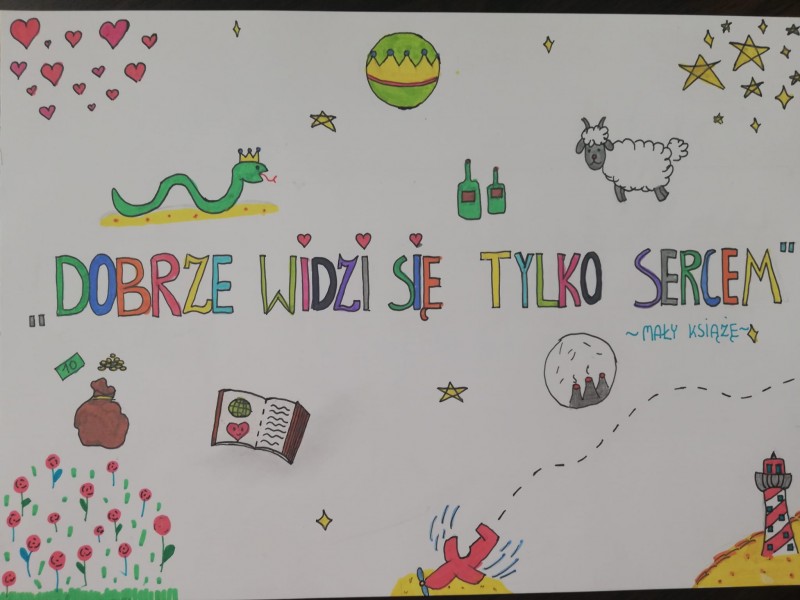 „DOBRZE WIDZI SIĘ TYLKO SERCEM"
~MAŁY KSIĄŻĘ~
10